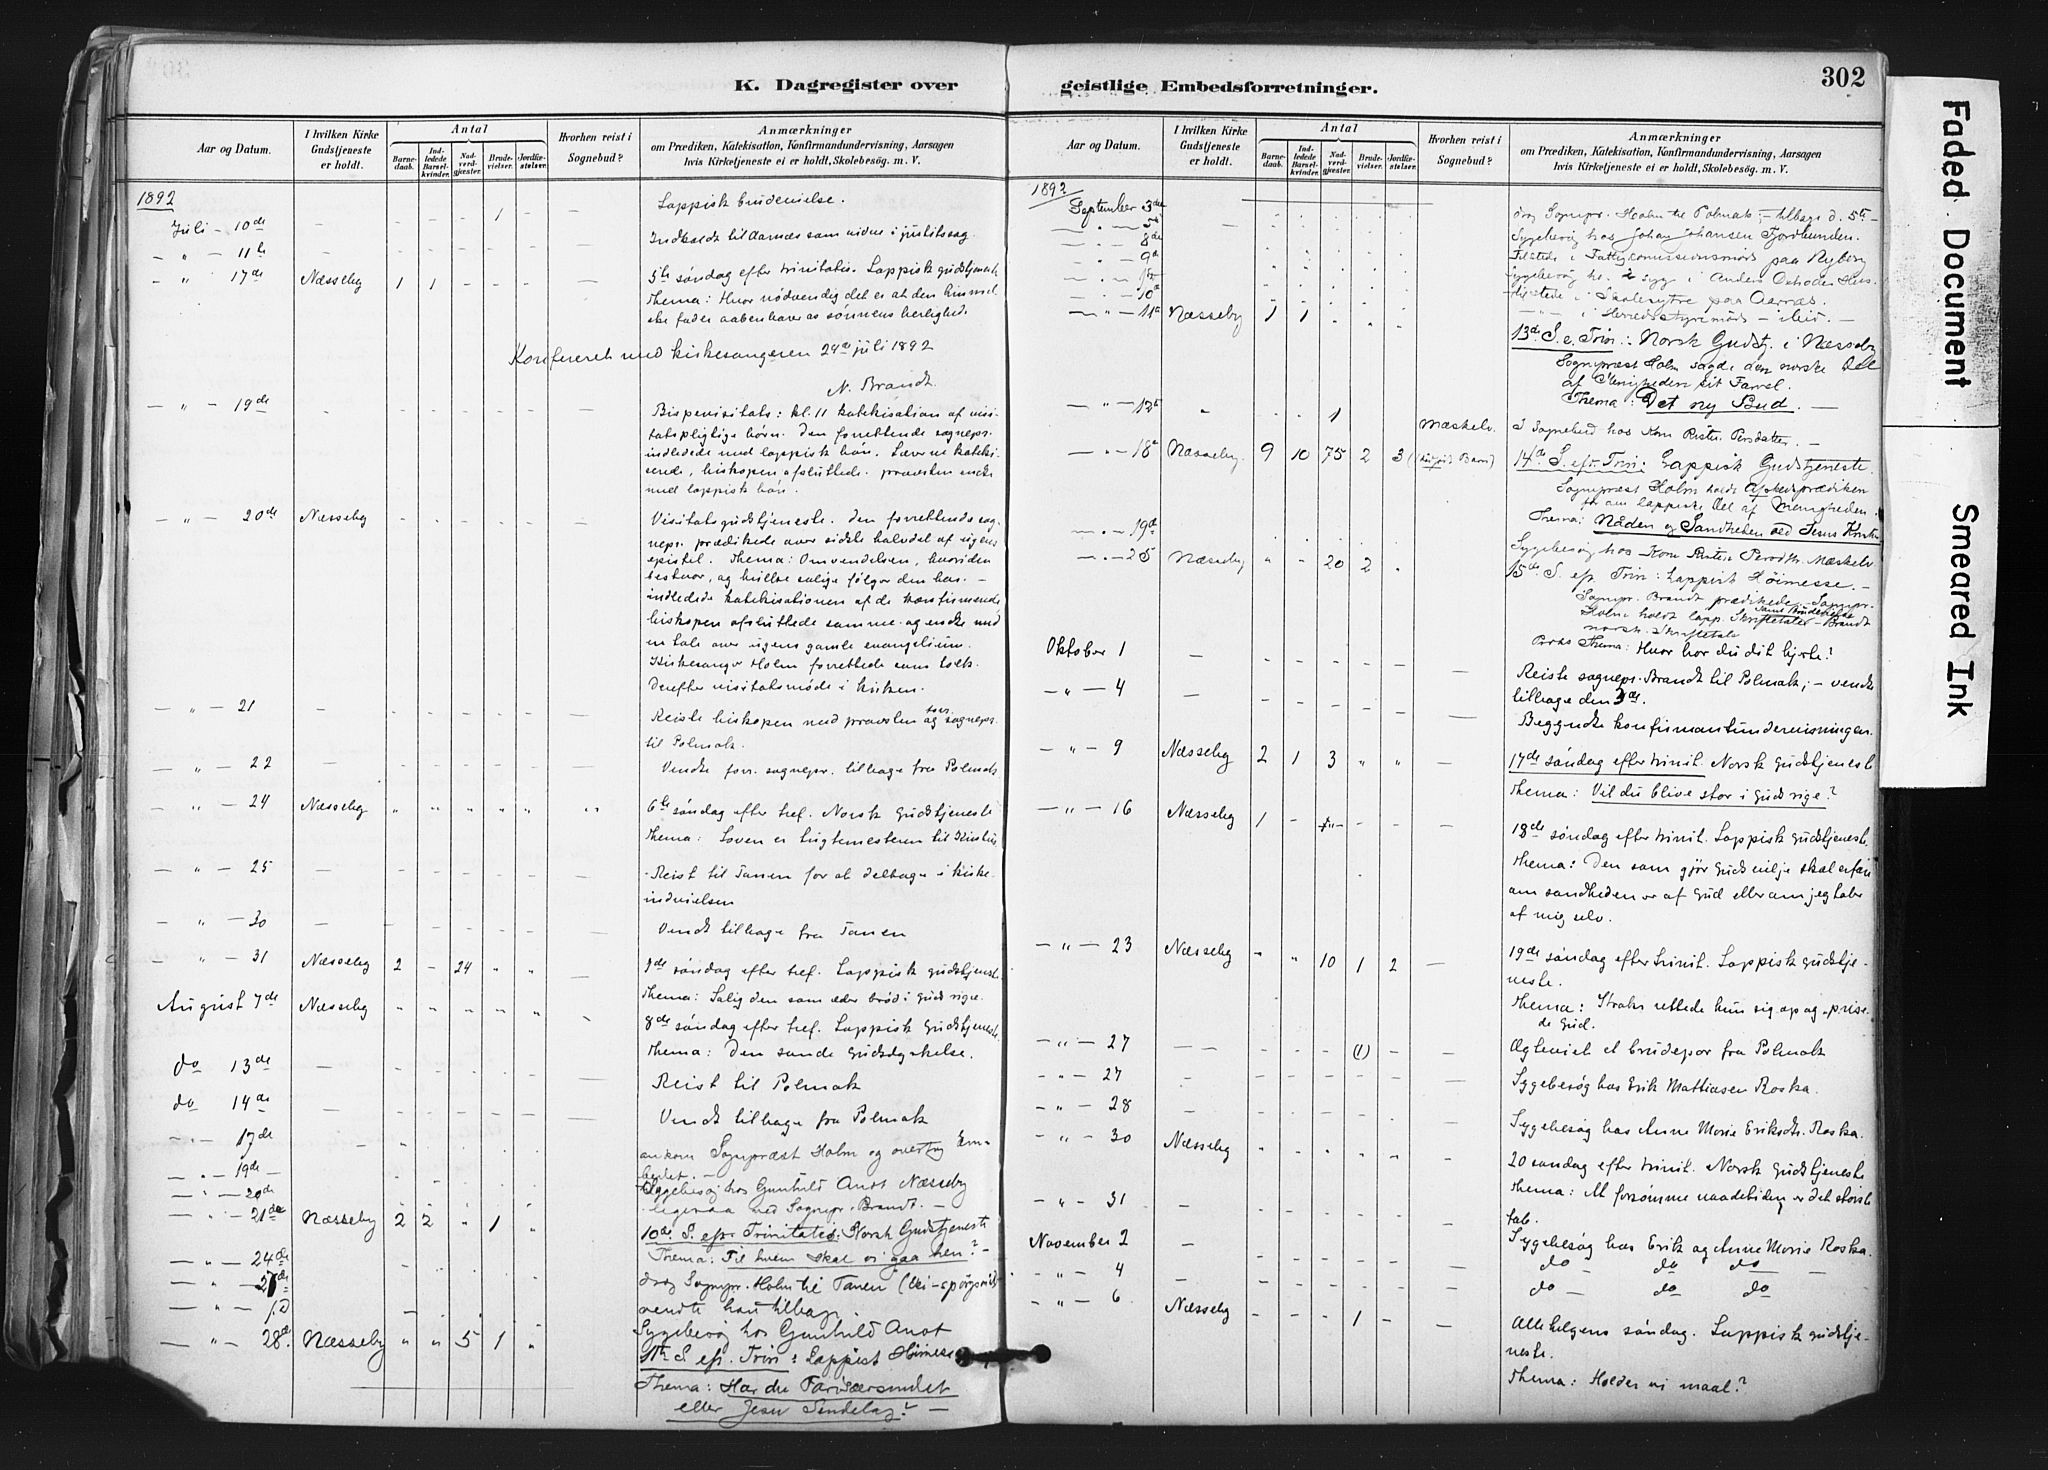 K. Dagregister over geistlige Embedsforretninger.
302
Faded Document
Smeared Ink
Aar og Datum.
I hvilken Kirke Gudstjeneste er holdt.
Antal
Barnedaab.
Indledede Barselkvinder.
Nadverdgjæster.
Brudevielser.
Jordfæstelser.
Hvorhen reist i Sognebud?
Anmærkninger
om Prædiken, Katekisation, Konfirmandundervisning, Aarsagen
hvis Kirketjeneste ei er holdt, Skolebesög. m. V.
1892
Juli - 10de - - - - 1 - - Lappisk brudevielse.
- " - 11te - - - - - - Indkaldt til Aarnæs som vidne i justitssag.
- " 17de Næsseby 1 1 - - - - 5te søndag efter trinitatis. Lappisk gudstjeneste
Thema: Hvor nødvendig det er at den himmel
ske fader aabenbarer os sønnens herlighed.
Konfereret med kirkesangeren 24de juli 1892
N. Brandt.
- " - 19de Bispevisitats: kl. 11 katekisation af visi
tatspligtige børn. Den forrettende sognepr.
indledede med lappisk bøn. Lærerne kateki-
serede, biskopen afsluttede. provsten endte
med lappisk bøn.
- " - 20de Næsseby Visitatsgudstjeneste. Den forrettende sog-
nepr. prædikede over sidste halvdel af ugens
epistel. Thema: Omvendelsen, hvori den
bestaar, og hvilke salige følger den har. -
indledede katekisationen af de konfirmerede
biskopen afsluttede samme og endte med
en tale over ugens gamle evangelium.
Kirkesanger Holm forrettede som tolk.
Derefter visitatsmøde i kirken.
- " - 21 Reiste biskopen med provsten og forr. sognepr.
til Polmak.
- " - 22 Vendte forr. sognepr. tilbage fra Polmak
- " - 24 Næsseby 6te søndag efter tref. Norsk gudstjeneste
Thema: Loven er tugtemesteren til Kristus
- " - 25 Reist til Tanen for at deltage i kirke-
indvielsen
- " - 30 Vendt tilbage fra Tanen
- " - 31 Næsseby 2 - 24 " " - 7de søndag efter tref. Lappisk gudstjeneste.
Thema: Salig den som æder brød i Guds rige.
August 7de Næsseby 8de søndag efter tref. Lappisk gudstjeneste.
Thema: Den sande gudsdyrkelse.
do 13de Reist til Polmak
do 14de Vendt tilbage fra Polmak
- " - 17de ankom Sognepræst Holm og overtog Em-
bedet. -
- " - 19de Sygebesøg hos Gunhild Anot Næsseby
- " - 20de ligesaa ved Sognepr. Brandt. -
- " - 21de Næsseby 2 2 " 1 " 10de S. eft. Trinitatis: Norsk Gudstjeneste
Thema: Til hvem skal vi gaa hen? -
- " - 24de drog Sognepr. Holm til Tanen
- " - 27de vendte han tilbage.
- " - s.D Sygebesøg hos Gunhild Anot
- " - 28de. Næsseby " " 5 1 " 11te S. eft. Trin: Lappisk Høimesse
Thema: Har du Farisæersindet
eller Jesu Sindelag? -
Aar og Datum.
I hvilken Kirke Gudstjeneste er holdt.
Antal
Barnedaab.
Indledede Barselkvinder.
Nadverdgjæster.
Brudevielser.
Jordfæstelser.
Hvorhen reist i Sognebud?
Anmærkninger
om Prædiken, Katekisation, Konfirmandundervisning, Aarsagen
hvis Kirketjeneste ei er holdt, Skolebesög. m. V.
1892
September 3die drog Sognepr. Holm til Polmak; - tilbage d. 5te -
- " - 5te Sygebesøg hos Johan Johansen Fjordbunden.
- " - 8de Tilstede i Fattigcomissionsmøde paa Nyborg
- " - 9de Sygebesøg hos 2 syge i Anders Hus
- " - 10de Tilstede i Skolestyre paa Aarnæs.
- " - 11te Næsseby 1 1 - " - i Herredsstyremøde -
13de S. e. Trin: Norsk Gudstj. i Næsseby
Sognepræst Holm sagde den norske Del
af Menigheden sit Farvel.
Thema: Det ny Bud. -
- " - " 1 Mæskelv. I Sognebud hos Persdatter. -
- " - 18de Næsseby. 9 10 75 2 3 14de S. eft. Trin: Lappisk Gudstjeneste.
Sognepræst Holm holdt Afskedsprædiken
for den lappiske Del af Menigheden.
Thema: Naaden og Sandheden ved Jesus Kristus
- " - 19de Sygebesøg hos Mæskelv
- " - 25 Næsseby " " 20 2 . 15de S. eft. Trin: Lappisk Høimesse. -
Sognepr. Brandt prædikede - Sognepr.
Holm holdt lapp. Skriftetaler - Brandt
norsk Skriftetale
Thema: Hvor har du dit hjerte?
Oktober 1 Reiste sognepr. Brandt til Polmak; - vendte
tilbage den 3die.
- " - 4 Begyndte konfirmantundervisningen.
- " - 9 Næsseby 2 1 3 " " - 17de søndag efter trinit. Norsk gudstjeneste
Thema: Vil du blive stor i Guds rige?
- " - 16 Næsseby 1 18de søndag efter trinit. Lappisk gudstjeneste.
Thema: Den som gjør Guds vilje skal erfare
om sandheden er af Gud eller om jeg taler
af mig selv.
- " - 23 Næsseby " " 10 1 2 - 19de søndag efter trinit. Lappisk gudstje-
neste.
Thema: Straks rettede hun sig op og prise-
de Gud.
- " - 27 - - (1) - - Ægteviet et brudepar fra Polmak
- " - 27 Sygebesøg hos Erik Mathiasen Roska.
- " - 28 Sygebesøg hos Anne Marie Eriksdtr. Roska.
- " - 30 Næsseby 20 søndag efter trinit. Norsk gudstjeneste
Thema: At forsømme naadetiden er det største
tab.
- " - 31 Sygebesøg hos Erik og Anne Marie Roska.
November 2 do do do
- " - 4 do do do
- " - 6 Næsseby 1 Alle helgens søndag. Lappisk gudstje-
neste.
Thema: Holder vi maal?